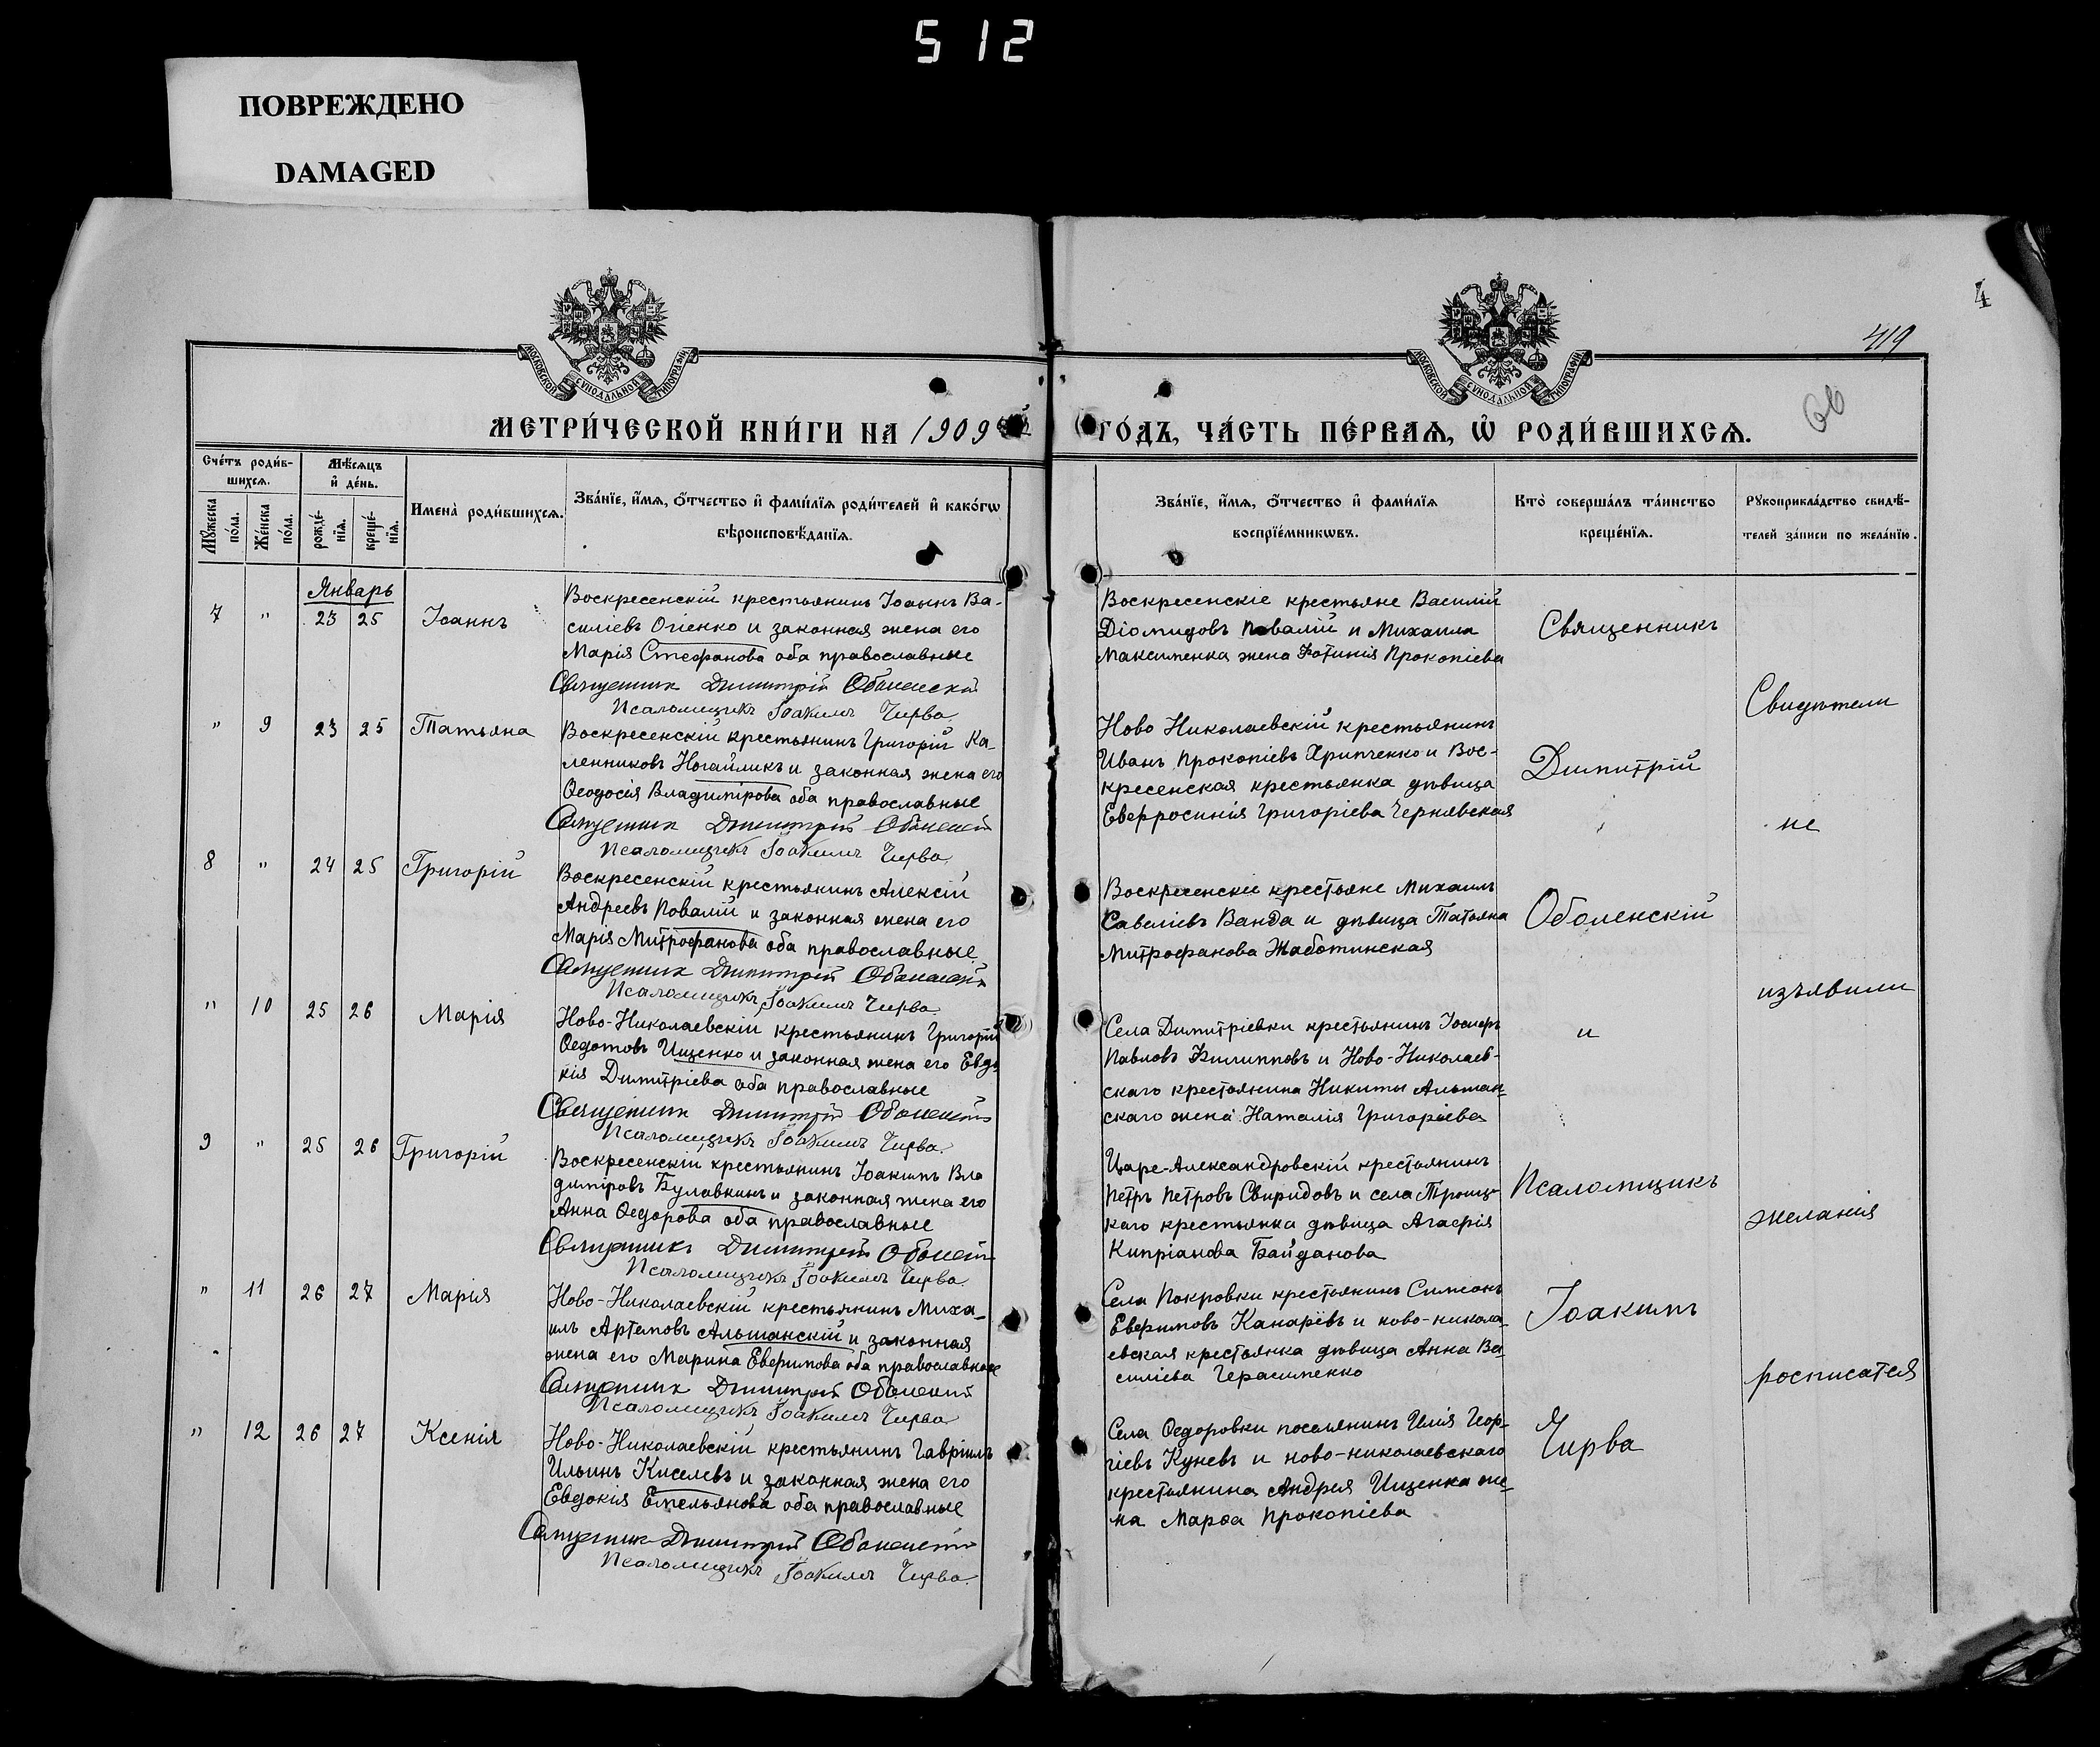 512
ПОВРЕЖДЕНО
DAMAGED
4
419
66
МОСКОВСКОЙ СУНОДАЛЬНОЙ ТИПОГРАФІИ
МОСКОВСКОЙ СУНОДАЛЬНОЙ ТИПОГРАФІИ
МЕТРИ́ЧЕСКОЙ КНИ́ГИ НА 1909
ГО́ДЪ, ЧА́СТЬ ПЕ́РВАѦ, Ѡ҆ РОДИ́ВШИХСѦ.
Сче́тъ роди́в-
шихсѧ.
Мꙋ́жеска по́ла.
Же́нска по́ла.
Мѣ́сѧцъ
и҆ де́нь.
рожде́-
нїѧ.
креще́-
нїѧ.
Имена̀ роди́вшихсѧ.
Зва́нїе, и҆́мѧ, ѻ҆́тчество и҆ фами́лїѧ роди́телей и҆ како́гѡ
вѣроисповѣ́данїѧ.
Зва́нїе, и҆́мѧ, ѻ҆́тчество и҆ фами́лїѧ
воспрїе́мникѡвъ.
Кто̀ соверша́лъ та́инство
креще́нїѧ.
Рꙋкоприкла́дство свидѣ́-
телей за́писи по жела́нїю.
Январь
7 " 23 25 Іоаннъ
Воскресенскій крестьянинъ Іоаннъ Ва-
силіевъ Огіенко и законная жена его
Марія Стефанова оба православные
Священник Димитрій Оболенскій
Псаломщикъ Іоакимъ Чирва.
Воскресенскіе крестьяне Василій
Діомидовъ Повалій и Михаила
Максименка жена Фотинія Прокопіева
" 9 23 25 Татьяна
Воскресенскій крестьянинъ Григорій Ка-
ленниковъ Ногайликъ и законная жена его
Ѳеодосія Владимірова оба православные
Священник Димитрій Оболенскій
Псаломщикъ Іоакимъ Чирва.
Ново Николаевскій крестьянинъ
Иванъ Прокопіевъ Хрипченко и Вос-
кресенская крестьянка дѣвица
Евфросинія Григоріева Чернявская
8 " 24 25 Григорій
Воскресенскій крестьянинъ Алексій
Андреевъ Повалій и законная жена его
Марія Митрофанова оба православные
Священник Димитрій Оболенскій
Псаломщикъ Іоакимъ Чирва.
Воскресенскіе крестьяне Михаилъ
Савеліевъ Ванда и дѣвица Татьяна
Митрофанова Жаботинская
" 10 25 26 Марія
Ново-Николаевскій крестьянинъ Григорій
Ѳедотовъ Ищенко и законная жена его Евдо
кія Димитріева оба православные
Священник Димитрій Оболенскій
Псаломщикъ Іоакимъ Чирва.
Села Димитріевки крестьянинъ Іосифъ
Павловъ Филипповъ и Ново-Николаев-
скаго крестьянина Никиты Альшан-
скаго жена Наталія Григоріева
9 " 25 26 Григорій
Воскресенскій крестьянинъ Іоакимъ Вла
диміровъ Булавкинъ и законная жена его
Анна Ѳедорова оба православные
Священникъ Димитрій Оболенскій
Псаломщикъ Іоакимъ Чирва.
Царе-Александровскій крестьянинъ
Петръ Петровъ Свиридовъ и села Троиц-
каго крестьянка дѣвица Агафія
Кипріанова Байданова
" 11 26 27 Марія
Ново-Николаевскій крестьянинъ Миха-
илъ Артемовъ Альшанскій и законная
жена его Марина Евфимова оба православные
Священник Димитрій Оболенскій
Псаломщикъ Іоакимъ Чирва
Села Покровки крестьянинъ Симеонъ
Евфимовъ Канарёвъ и ново-никола-
евская крестьянка дѣвица Анна Ва-
силіева Герасименко
" 12 26 27 Ксенія
Ново-Николаевскій крестьянинъ Гавріилъ
Ильинъ Киселевъ и законная жена его
Евдокія Емельянова оба православные
Священник Димитрій Оболенскій
Псаломщикъ Іоакимъ Чирва.
Села Ѳедоровки поселянинъ Илія Геор-
гіевъ Куневъ и ново-николаевскаго
крестьянина Андрея Ищенка же-
на Марѳа Прокопіева
Священникъ
Димитрій
Оболенскій
и
Псаломщикъ
Іоакимъ
Чирва
Свидѣтели
не
изъявили
желанія
росписатся